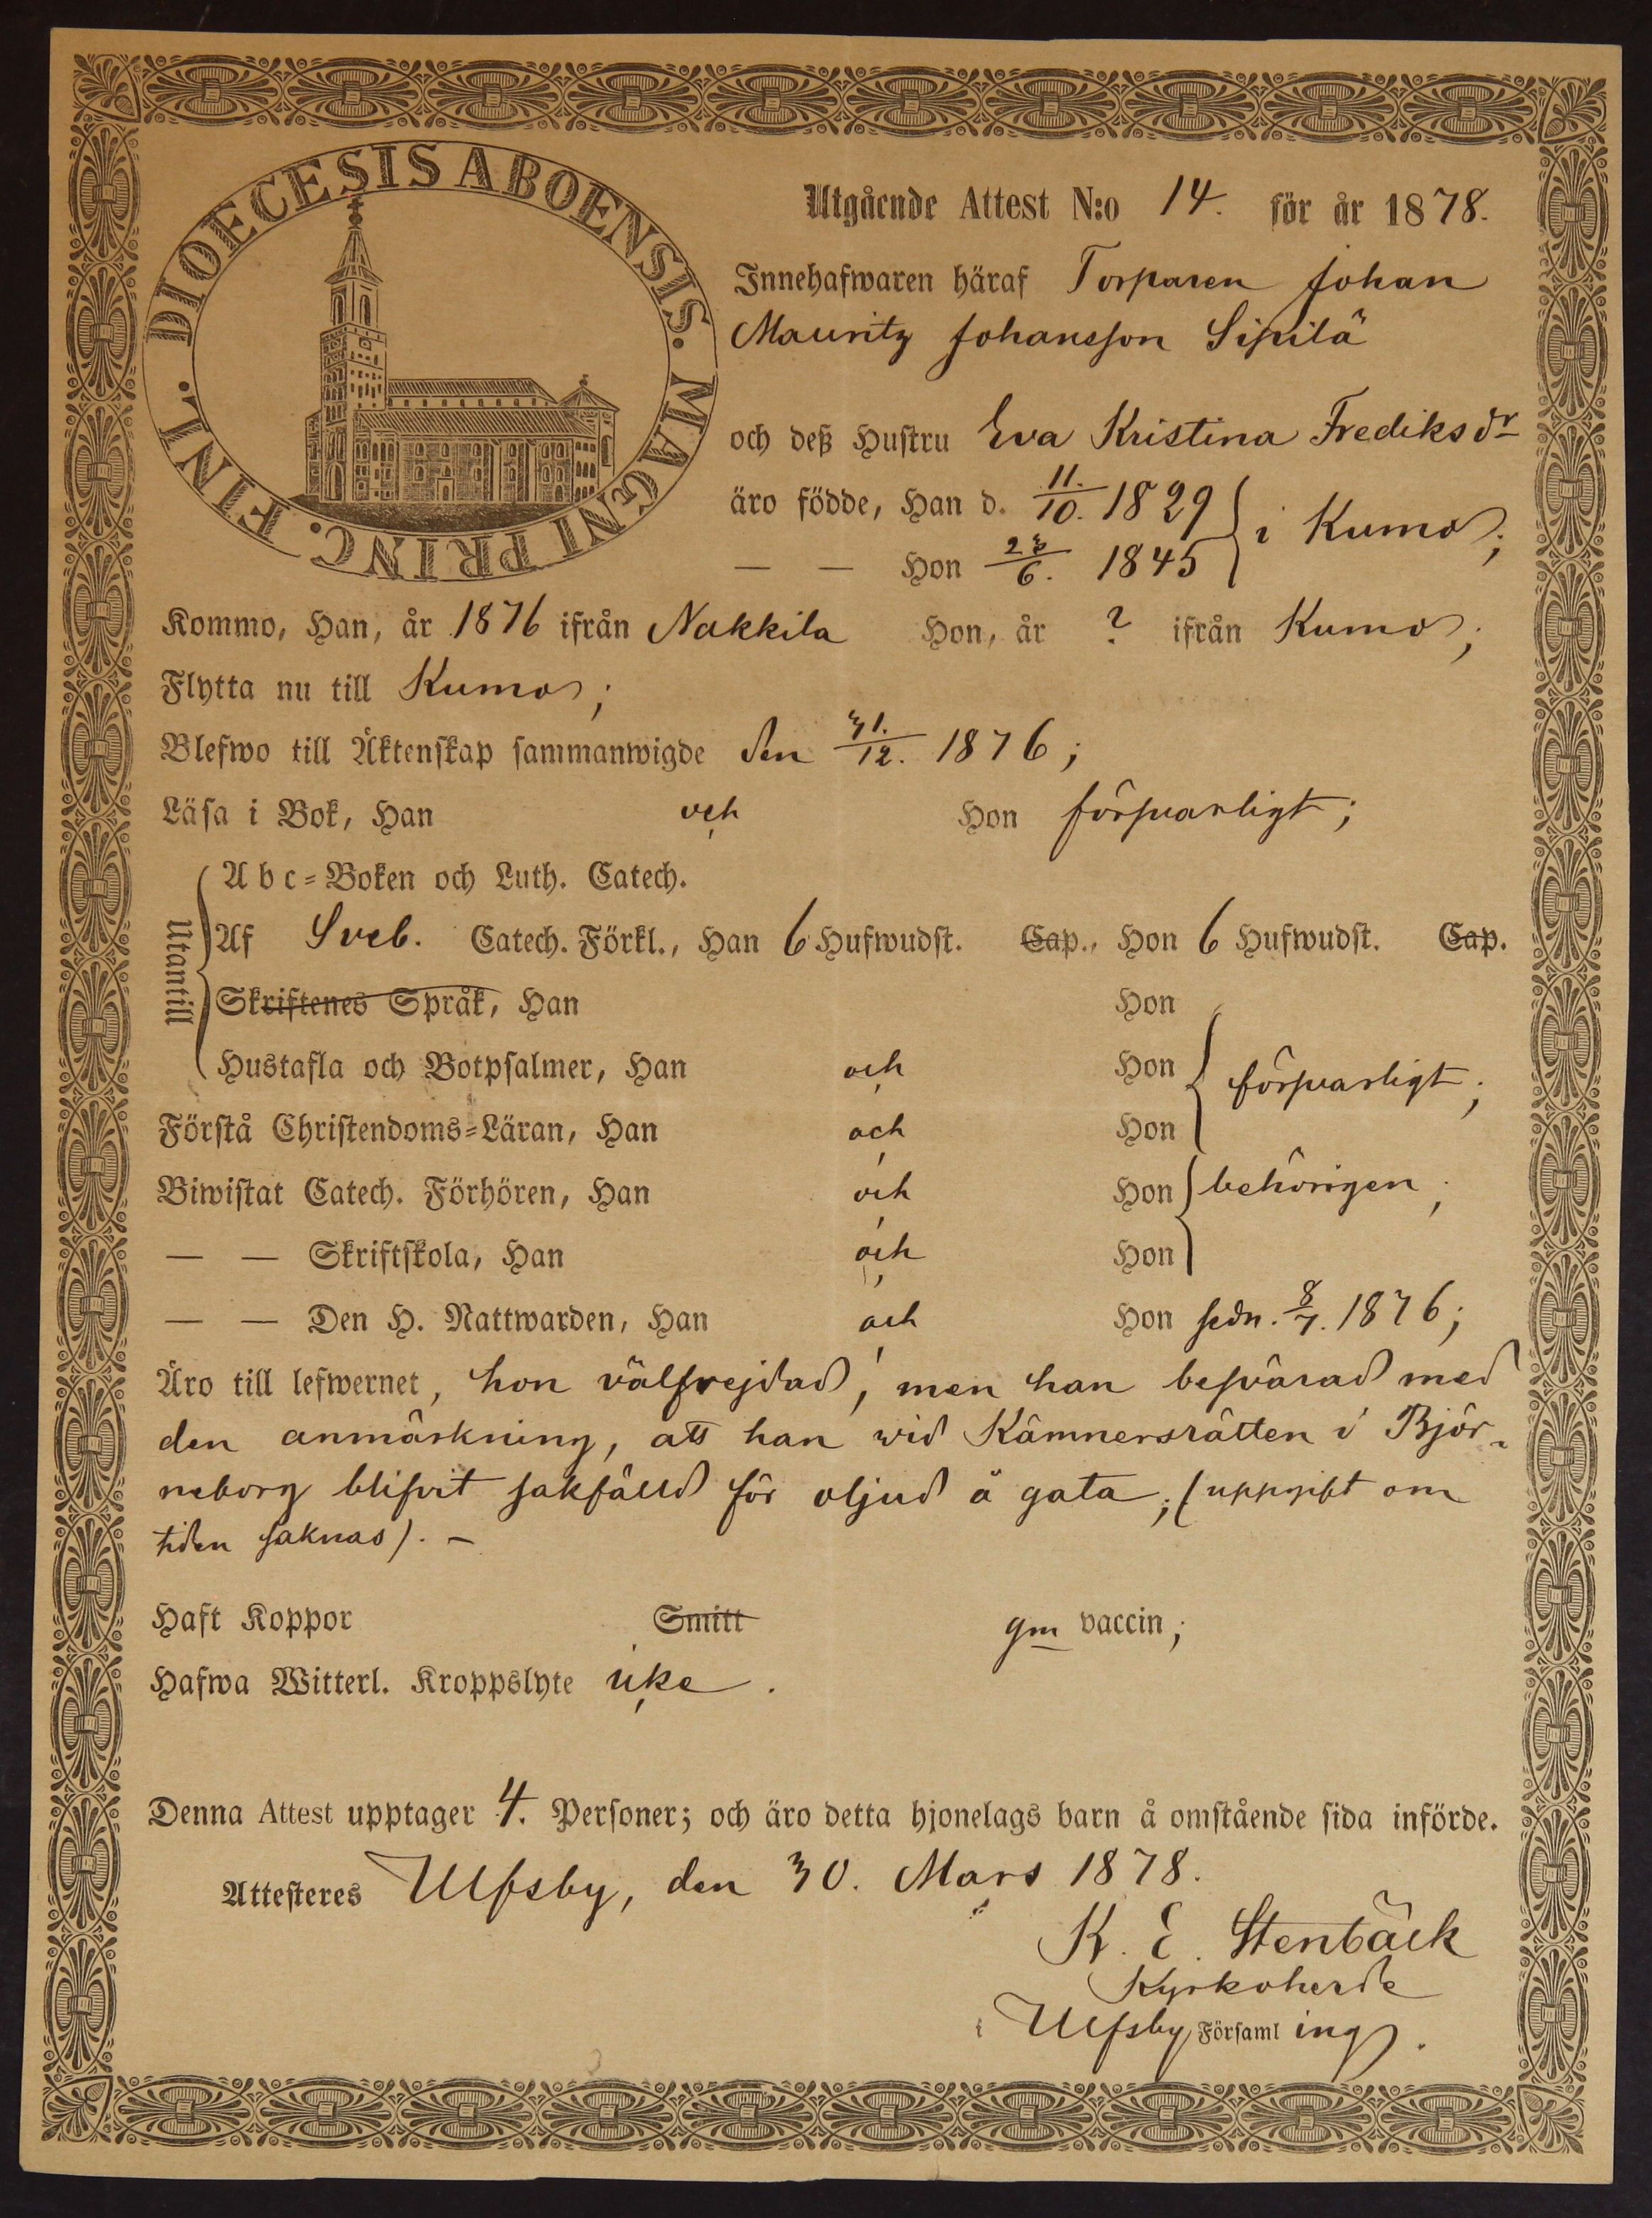 DIOECESIS ABOENSIS. MAGNI PRINC. FINL.
Utgående Attest N:o 14. för år 1878.
Innehafwaren häraf Torparen Johan
Mauritz Johansson Sipilä
och deß Hustru Eva Kristina Frediksdr
äro födde, Han d. 11./10. 1829 i Kumo;
— — Hon 23/6. 1845
Kommo, Han, år 1876 ifrån Nakkila Hon, år ? ifrån Kumo;
Flytta nu till Kumo;
Blefwo till Äktenskap sammanwigde den 31./12. 1876;
Läsa i Bok, Han och Hon försvarligt;
Utantill
Abc-Boken och Luth. Catech.
Af Sveb. Catech. Förkl., Han 6 Hufwudst. Cap., Hon 6 Hufwudst. Cap.
Skriftenes Språk, Han Hon
Hustafla och Botpsalmer, Han och Hon försvarligt;
Förstå Christendoms-Läran, Han och Hon
Biwistat Catech. Förhören, Han och Hon behörigen;
— — Skriftskola, Han och Hon
— — Den H. Nattwarden, Han och Hon sedn. 8/7. 1876;
Äro till lefwernet, hon välfrejdad, men han besvärad med
den anmärkning, att han wid Kämnersrätten i Björ-
neborg blifvit sakfälld för oljud å gata; (uppgift om
tiden saknas). –
Haft Koppor Smitt gm vaccin;
Hafwa Witterl. Kroppslyte icke.
Denna Attest upptager 4. Personer; och äro detta hjonelags barn å omstående sida införde.
Attesteres Ulfsby, den 30. Mars 1878.
K. E. Stenbäck
Kyrkoherde
i Ulfsby Församling.